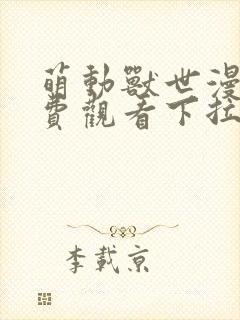 萌動獸世漫
費觀看下拉
李載京